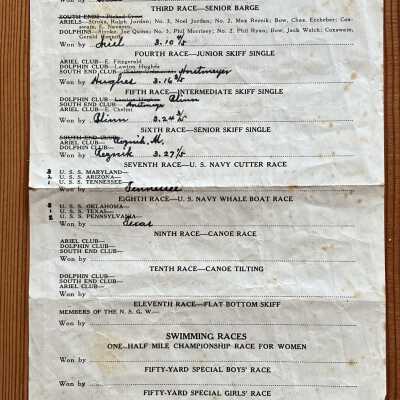 THIRD RACE—SENIOR BARGE
SOUTH END—
ARIELS—Stroke, Ralph Jordan; No. 3, Noel Jordan; No. 2, Max Reznik; Bow, Chas. Encheber; Coxswain, E. Navarro.
DOLPHINS—Stroke, Joe Quinn; No. 3, Phil Morrisey; No. 2, Phil Ryan; Bow, Jack Walch; Coxswain,
Won by Ariel 3.10 1/5
FOURTH RACE—JUNIOR SKIFF SINGLE
ARIEL CLUB—E. Fitzgerald
DOLPHIN CLUB—Lawton Hughes
SOUTH END CLUB
Won by Hughes 3.16
FIFTH RACE—INTERMEDIATE SKIFF SINGLE
DOLPHIN CLUB—Lawton Hughes Blinn
SOUTH END CLUB
ARIEL CLUB—E.
Won by Blinn 3.24
SIXTH RACE—SENIOR SKIFF SINGLE
SOUTH END CLUB—
ARIEL CLUB—Reznik, M.
DOLPHIN CLUB—
Won by Reznik 3.27
SEVENTH RACE—U. S. NAVY CUTTER RACE
3 U. S. S. MARYLAND—
2 U. S. S. ARIZONA—
1 U. S. S. TENNESSEE—
Won by Tennessee
EIGHTH RACE—U. S. NAVY WHALE BOAT RACE
3 U. S. S. OKLAHOMA—
1 U. S. S. TEXAS—
2 U. S. S. PENNSYLVANIA—
Won by Texas
NINTH RACE—CANOE RACE
ARIEL CLUB—
DOLPHIN CLUB—
SOUTH END CLUB—
Won by
TENTH RACE—CANOE TILTING
DOLPHIN CLUB—
SOUTH END CLUB—
ARIEL CLUB—
Won by
ELEVENTH RACE—FLAT BOTTOM SKIFF
MEMBERS OF THE N. S. G. W.—
Won by
SWIMMING RACES
ONE-HALF MILE CHAMPIONSHIP RACE FOR WOMEN
Won by
FIFTY-YARD SPECIAL BOYS' RACE
Won by
FIFTY-YARD SPECIAL GIRLS' RACE